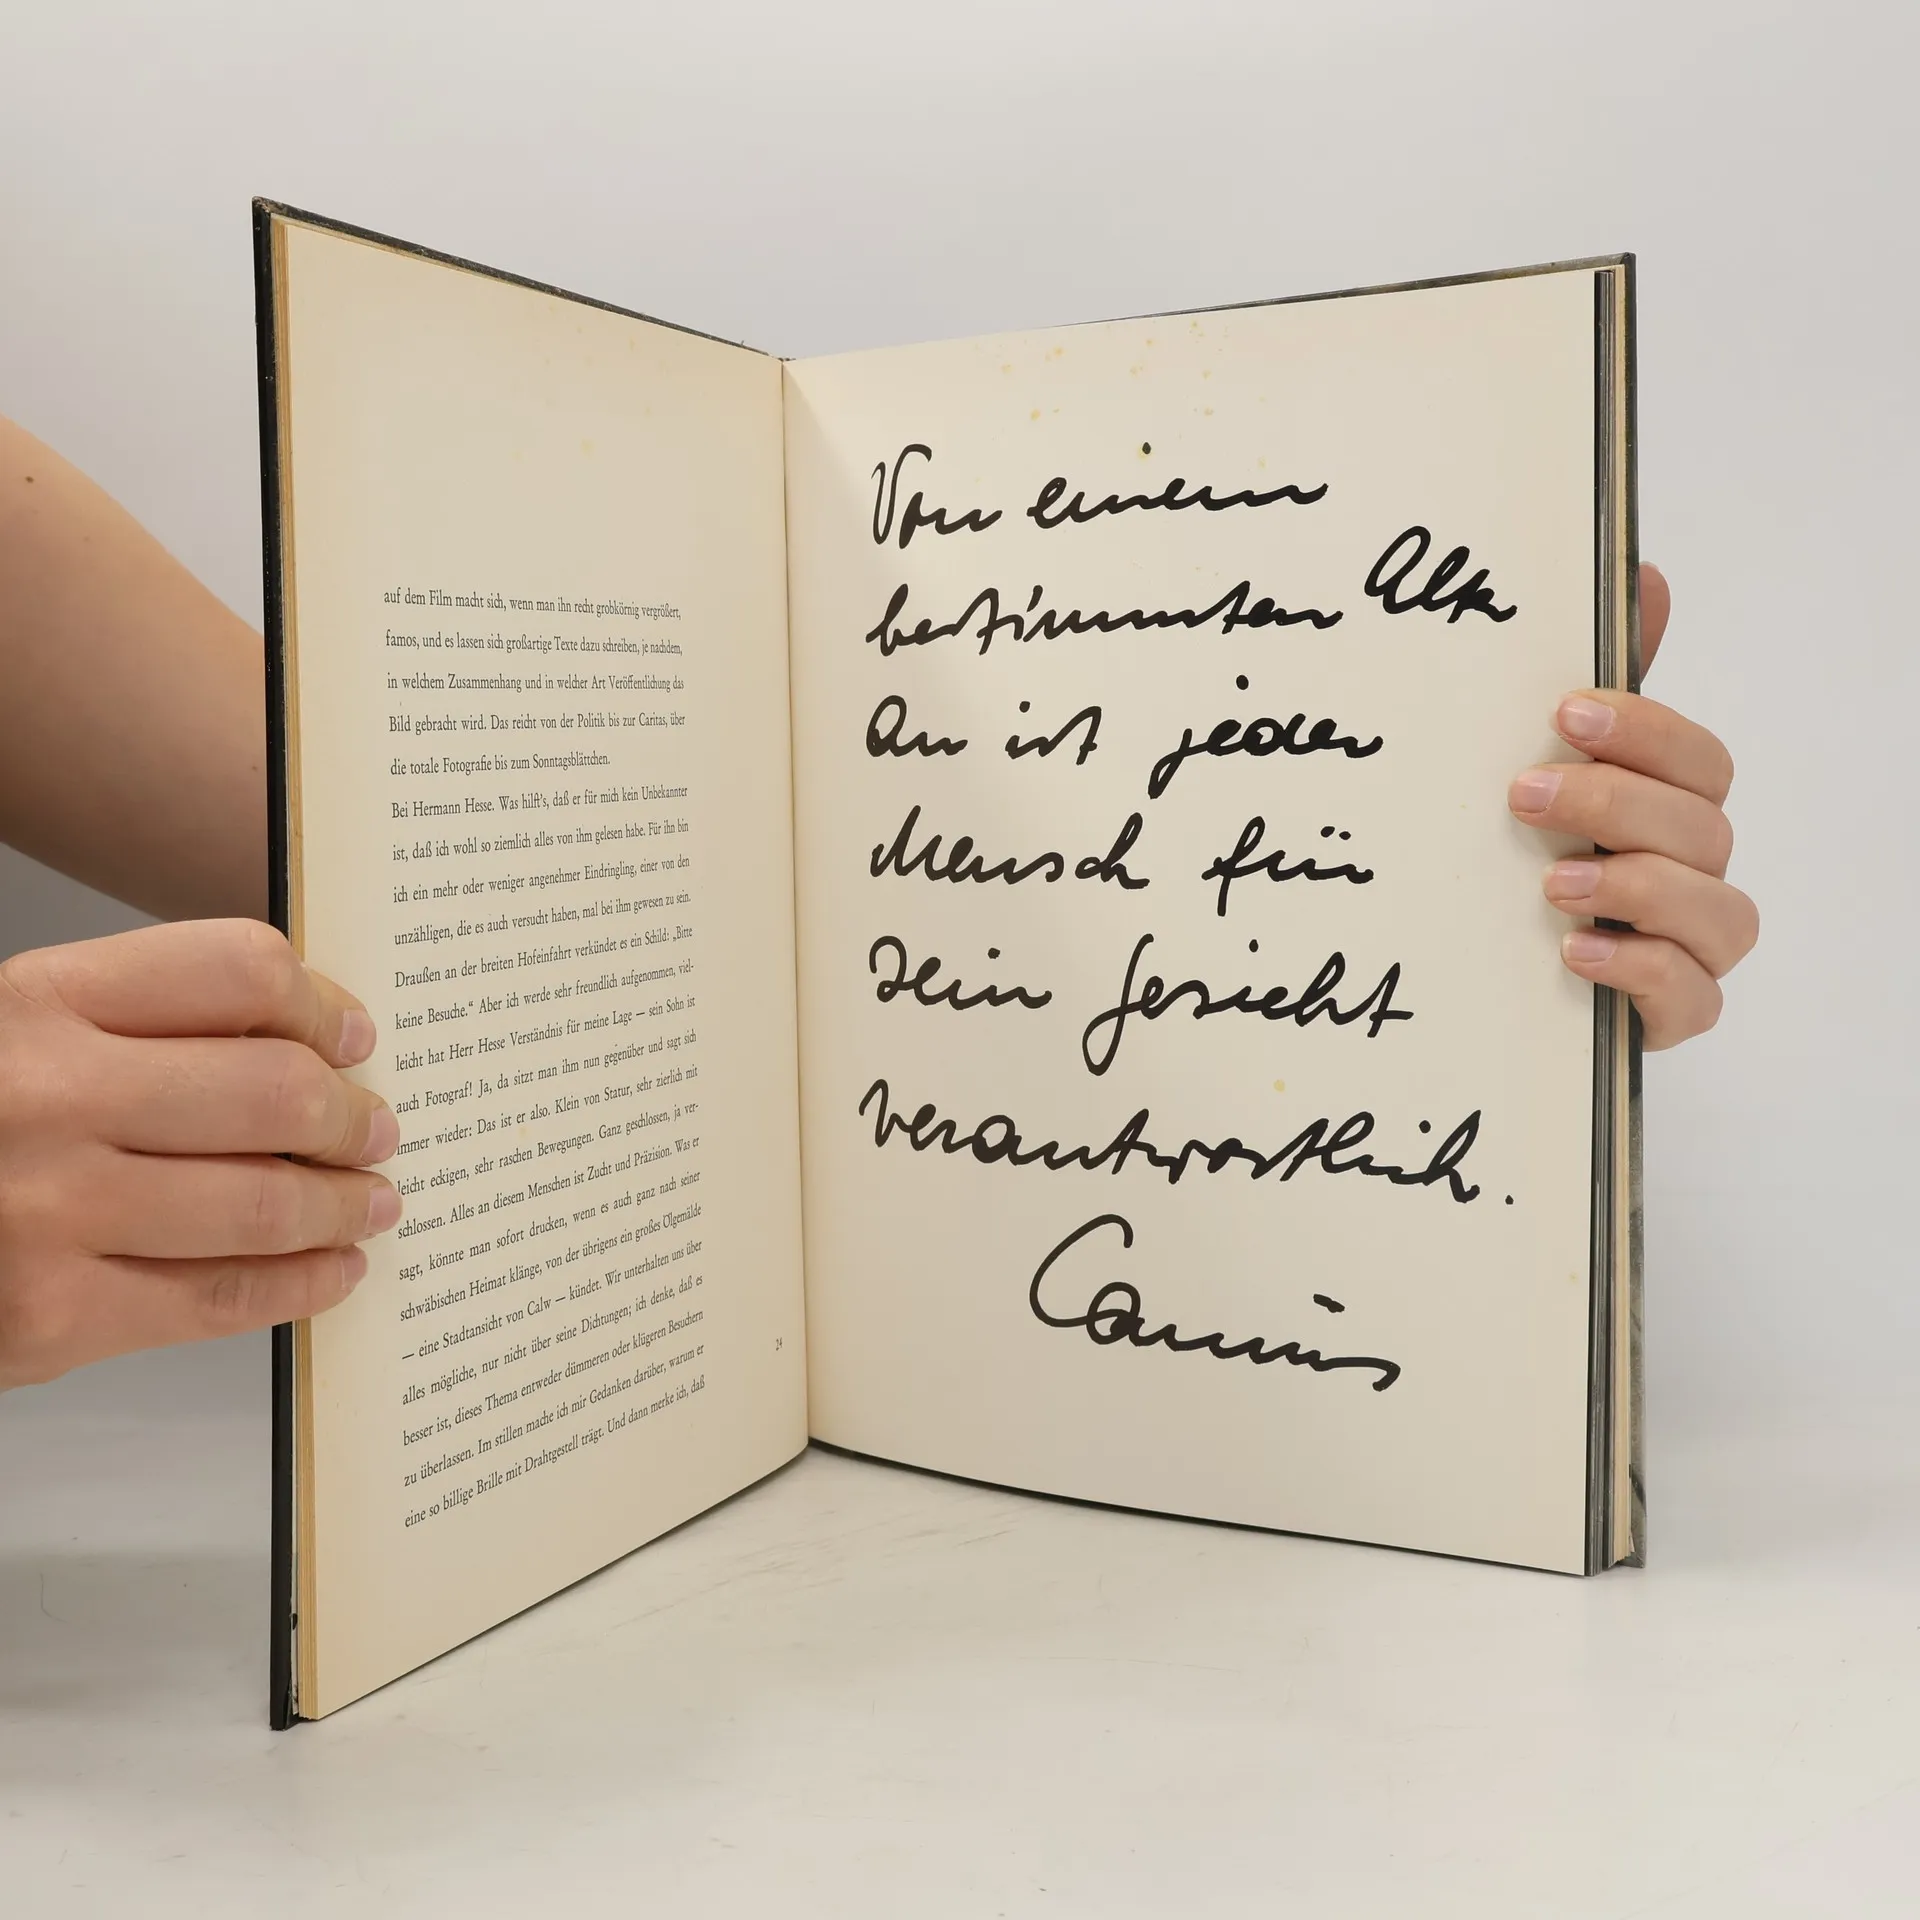 auf dem Film macht sich, wenn man ihn recht grobkörnig vergrößert,
famos, und es lassen sich großartige Texte dazu schreiben, je nachdem,
in welchem Zusammenhang und in welcher Art Veröffentlichung das
Bild gebracht wird. Das reicht von der Politik bis zur Caritas, über
die totale Fotografie bis zum Sonntagsblättchen.
Bei Hermann Hesse. Was hilft's, daß er für mich kein Unbekannter
ist, daß ich wohl so ziemlich alles von ihm gelesen habe. Für ihn bin
ich ein mehr oder weniger angenehmer Eindringling, einer von den
unzähligen, die es auch versucht haben, mal bei ihm gewesen zu sein.
Draußen an der breiten Hofeinfahrt verkündet es ein Schild: „Bitte
keine Besuche.“ Aber ich werde sehr freundlich aufgenommen, viel-
leicht hat Herr Hesse Verständnis für meine Lage — sein Sohn ist
auch Fotograf! Ja, da sitzt man ihm nun gegenüber und sagt sich
immer wieder: Das ist er also. Klein von Statur, sehr zierlich mit
leicht eckigen, sehr raschen Bewegungen. Ganz geschlossen, ja ver-
schlossen. Alles an diesem Menschen ist Zucht und Präzision. Was er
sagt, könnte man sofort drucken, wenn es auch ganz nach seiner
schwäbischen Heimat klänge, von der übrigens ein großes Ölgemälde
— eine Stadtansicht von Calw — kündet. Wir unterhalten uns über
alles mögliche, nur nicht über seine Dichtungen; ich denke, daß es
besser ist, dieses Thema entweder dümmeren oder klügeren Besuchern
zu überlassen. Im stillen mache ich mir Gedanken darüber, warum er
eine so billige Brille mit Drahtgestell trägt. Und dann merke ich, daß
24
Von einem
bestimmten Alter
an ist jeder
Mensch für
sein Gesicht
verantwortlich.
Camus